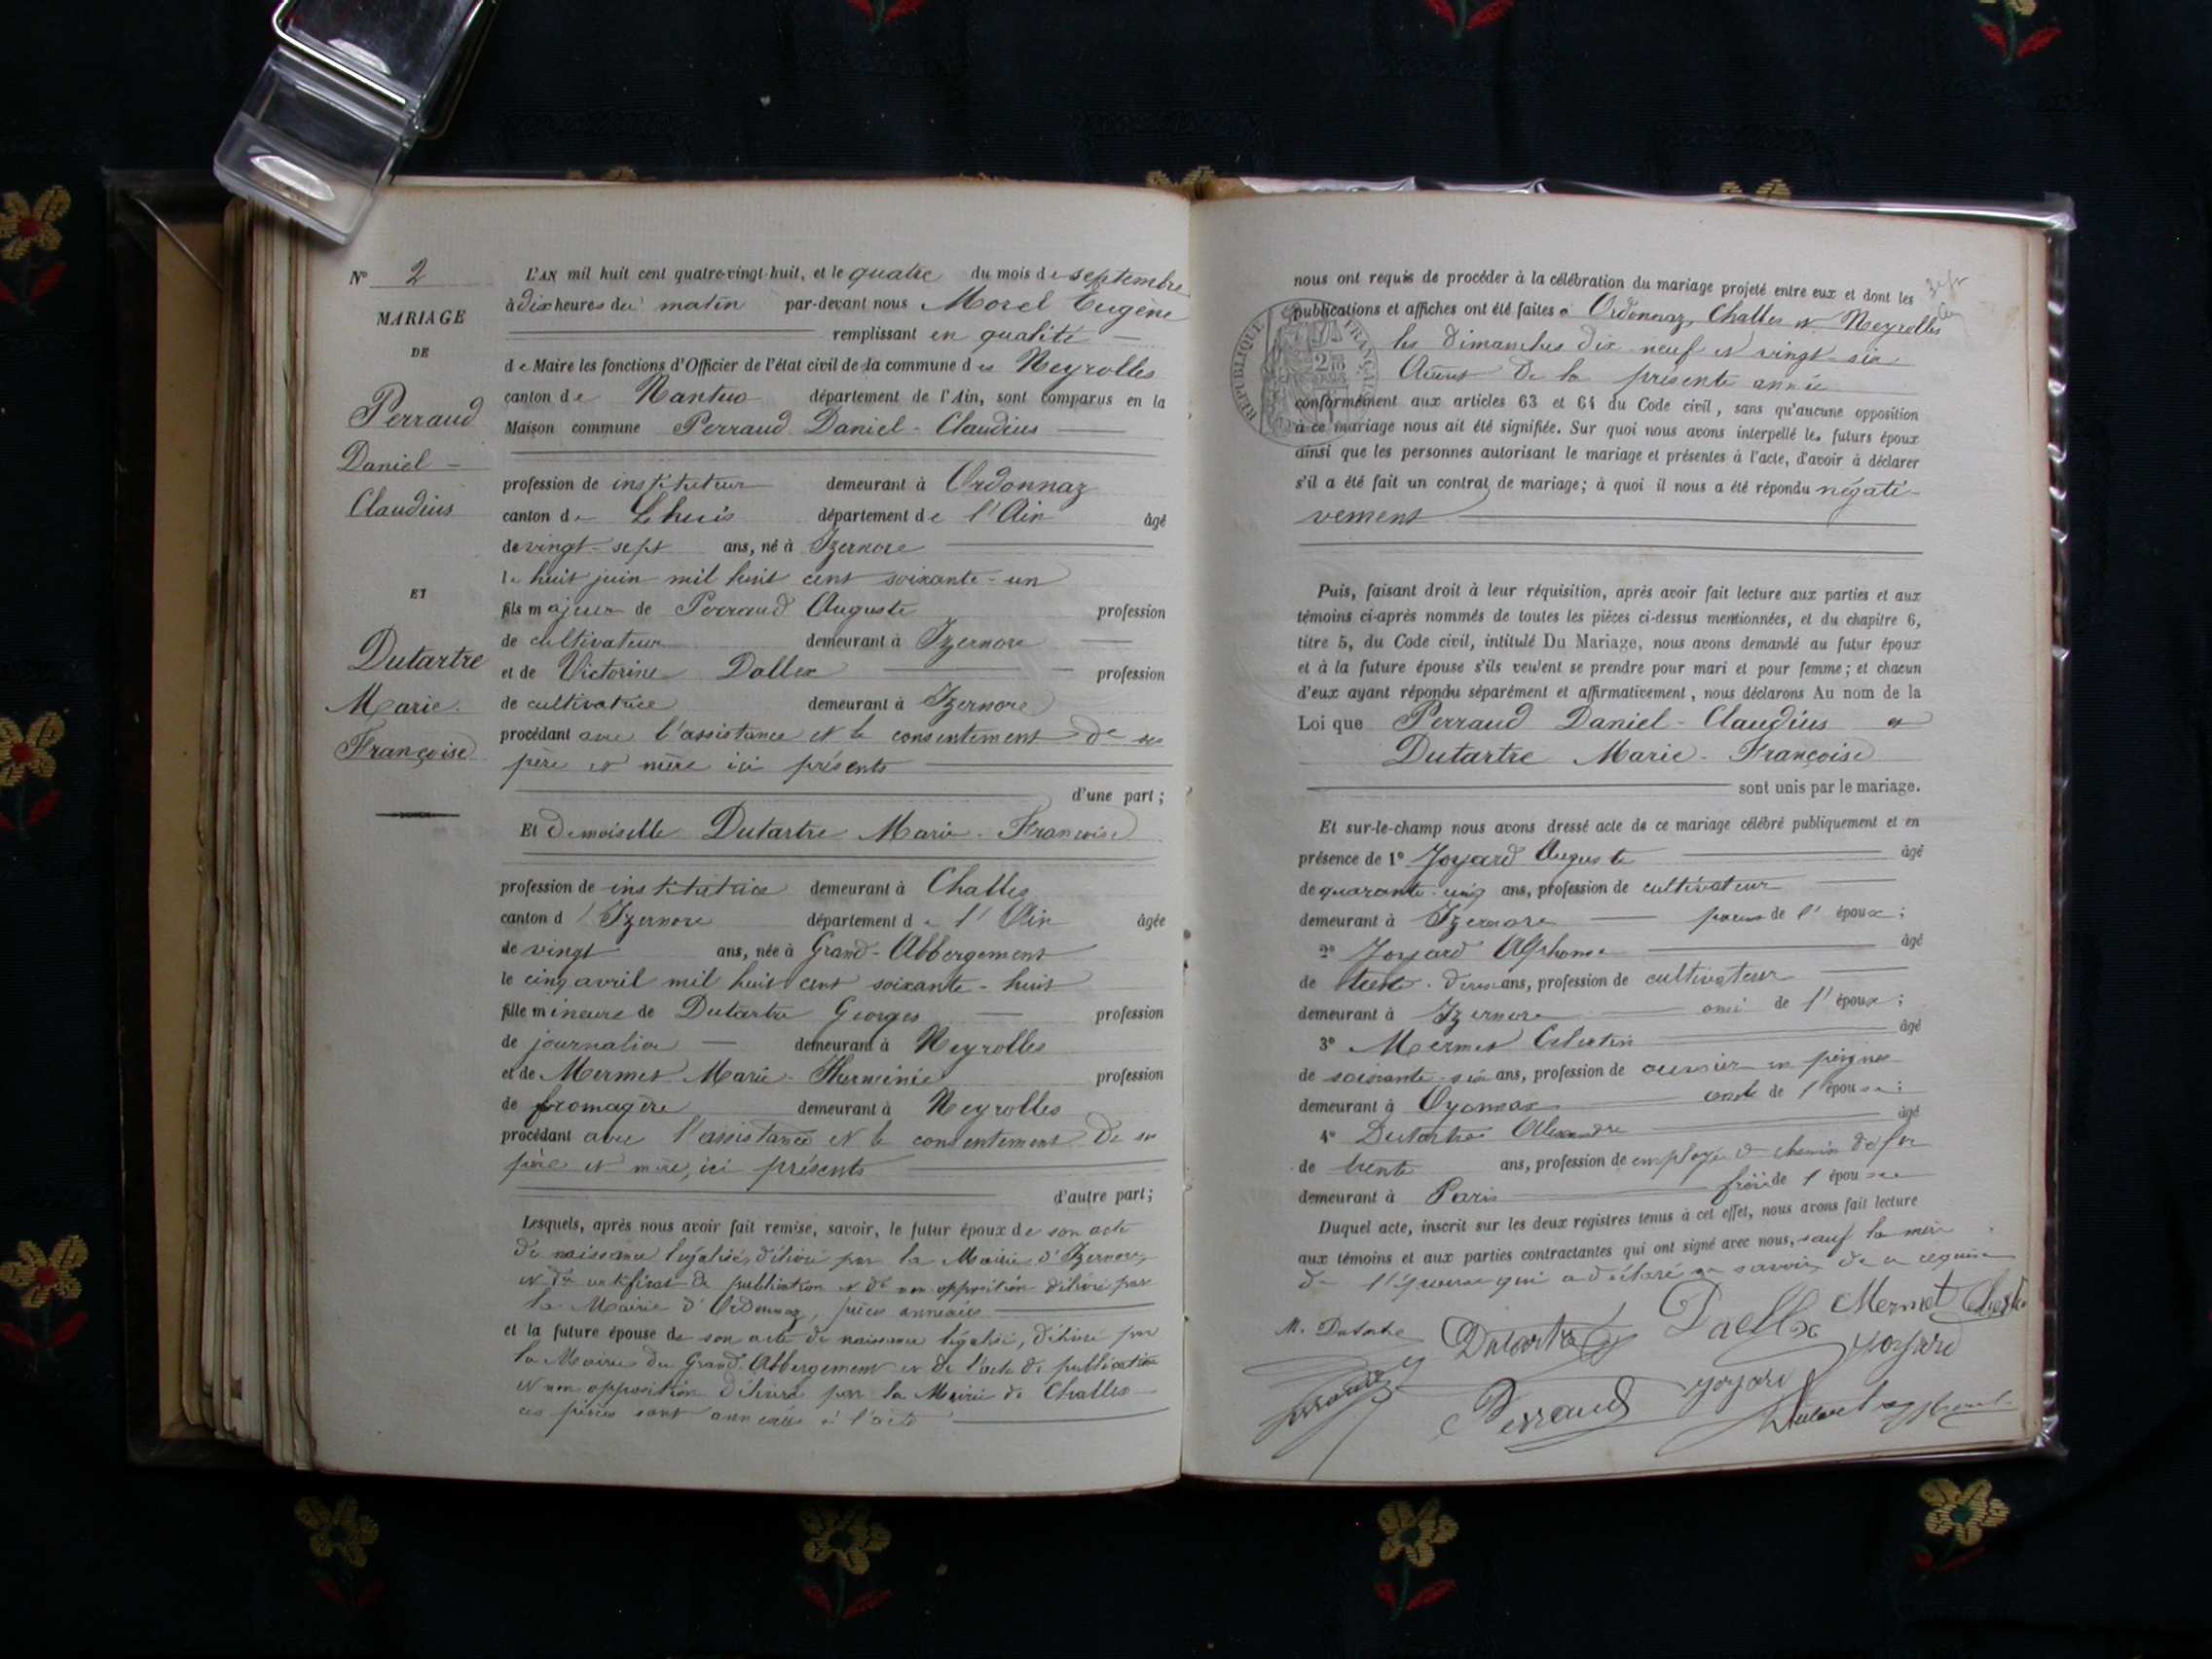 N° 2
MARIAGE
DE
Perraud
Daniel -
Claudius
ET
Dutartre
Marie.
Françoise
L'AN mil huit cent quatre-vingt-huit, et le quatre du mois de septembre
à dix heures du matin par-devant nous Morel Eugène
remplissant en qualité
de Maire les fonctions d'Officier de l'état civil de la commune des Neyrolles
canton de Nantua département de l'Ain, sont comparus en la
Maison commune Perraud Daniel-Claudius
profession de instituteur demeurant à Ordonnaz
canton de Lhuis département de l'Ain âgé
de vingt-sept ans, né à Izernore
le huit juin mil huit cent soixante-un
fils majeur de Perraud Auguste profession
de cultivateur demeurant à Izernore
et de Victorine Dallex profession
de cultivatrice demeurant à Izernore
procédant avec l'assistance et le consentement de ses
père et mère ici présents
d'une part;
Et demoiselle Dutartre Marie-Françoise
profession de institutrice demeurant à Challes
canton d'Izernore département de l'Ain âgée
de vingt ans, née à Grand-Abbergement
le cinq avril mil huit cent soixante-huit
fille mineure de Dutartre Georges profession
de journalier demeurant à Neyrolles
et de Mermet Marie-Herminie profession
de fromagère demeurant à Neyrolles
procédant avec l'assistance et le consentement de ses
père et mère, ici présents
d'autre part;
Lesquels, après nous avoir fait remise, savoir, le futur époux de son acte
de naissance légalisé, délivré par la Mairie d'Izernore,
et du certificat de publication et de non opposition délivré par
la Mairie d'Ordonnaz, pièces annexées
et la future épouse de son acte de naissance légalisé, délivré par
la Mairie du Grand-Abbergement et de l'acte de publication
et non opposition délivré par la Mairie de Challes
ces pièces sont annexées à l'acte
nous ont requis de procéder à la célébration du mariage projeté entre eux et dont les
publications et affiches ont été faites à Ordonnaz, Challes et Neyrolles
les dimanches dix-neuf et vingt-six
Août de la présente année
RÉPUBLIQUE FRANÇAISE
conformément aux articles 63 et 64 du Code civil, sans qu'aucune opposition
à ce mariage nous ait été signifiée. Sur quoi nous avons interpellé les futurs époux
ainsi que les personnes autorisant le mariage et présentes à l'acte, d'avoir à déclarer
s'il a été fait un contrat de mariage; à quoi il nous a été répondu négati-
vement
Puis, faisant droit à leur réquisition, après avoir fait lecture aux parties et aux
témoins ci-après nommés de toutes les pièces ci-dessus mentionnées, et du chapitre 6,
titre 5, du Code civil, intitulé Du Mariage, nous avons demandé au futur époux
et à la future épouse s'ils veulent se prendre pour mari et pour femme; et chacun
d'eux ayant répondu séparément et affirmativement, nous déclarons Au nom de la
Loi que Perraud Daniel-Claudius et
Dutartre Marie-Françoise
sont unis par le mariage.
Et sur-le-champ nous avons dressé acte de ce mariage célébré publiquement et en
présence de 1° Joyard Auguste âgé
de quarante-cinq ans, profession de cultivateur
demeurant à Izernore de l'époux;
2° Joyard Alphonse âgé
de ans, profession de cultivateur
demeurant à Izernore ami de l'époux;
3° Mermet Célestin âgé
de soixante-six ans, profession de ouvrier en peignes
demeurant à Oyonnax oncle de l'épouse;
4° Dutartre Alexandre âgé
de trente ans, profession de employé de chemin de fer
demeurant à Paris frère de l'épouse
Duquel acte, inscrit sur les deux registres tenus à cet effet, nous avons fait lecture
aux témoins et aux parties contractantes qui ont signé avec nous, sauf la mère
de l'épouse qui a déclaré ne savoir, de ce requise
M. Dutartre Dutartre Dallex Mermet
Joyard
Perraud Joyard